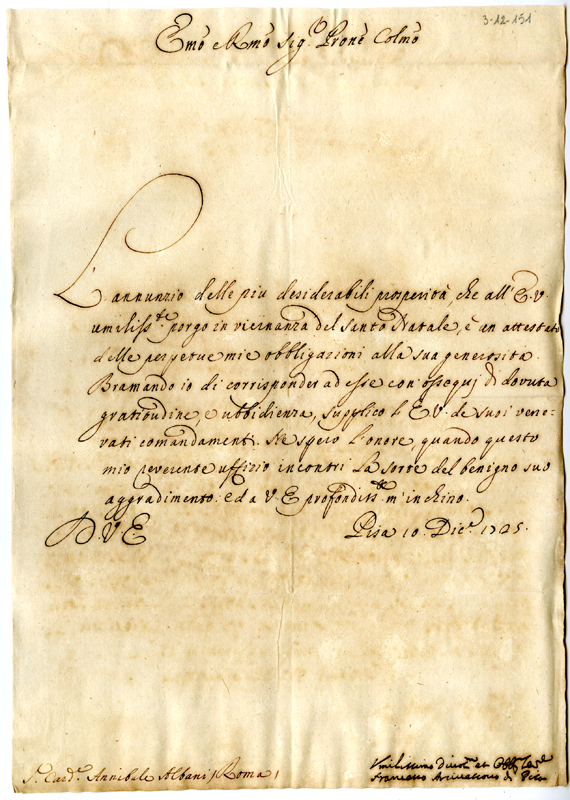 3-12-151
Emo e Rmo Sig.r Prone Colmo
L'annunzio delle piu desiderabili prosperità, che all' E. V.
umiliss.te porgo in vicinanza del Santo Natale, è un attestato
delle perpetue mie obbligazioni alla sua generosita.
Bramando io di corrisponder ad esse con ossequj di dovuta
gratitudine, e ubbidienza, supplico l' E V. de suoi vene=
rati comandamenti. Ne spero l'onore, quando questo
mio reverente uffizio incontri la sorte del benigno suo
aggradimento. ed a V. E profondiss.te m'inchino.
D. V E Pisa 10. Dic.e 1725.
S.r Card.e Annibale Albani (Roma)
Umilissimo Divot.o et Obb.
Francesco di Pisa